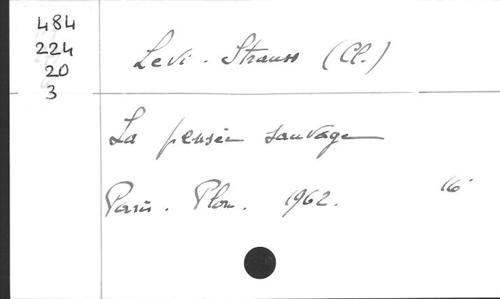 484
224
20
3
Levi-Strauss (Cl.)
La pensée sauvage
Paris. Plon. 1962. 16°